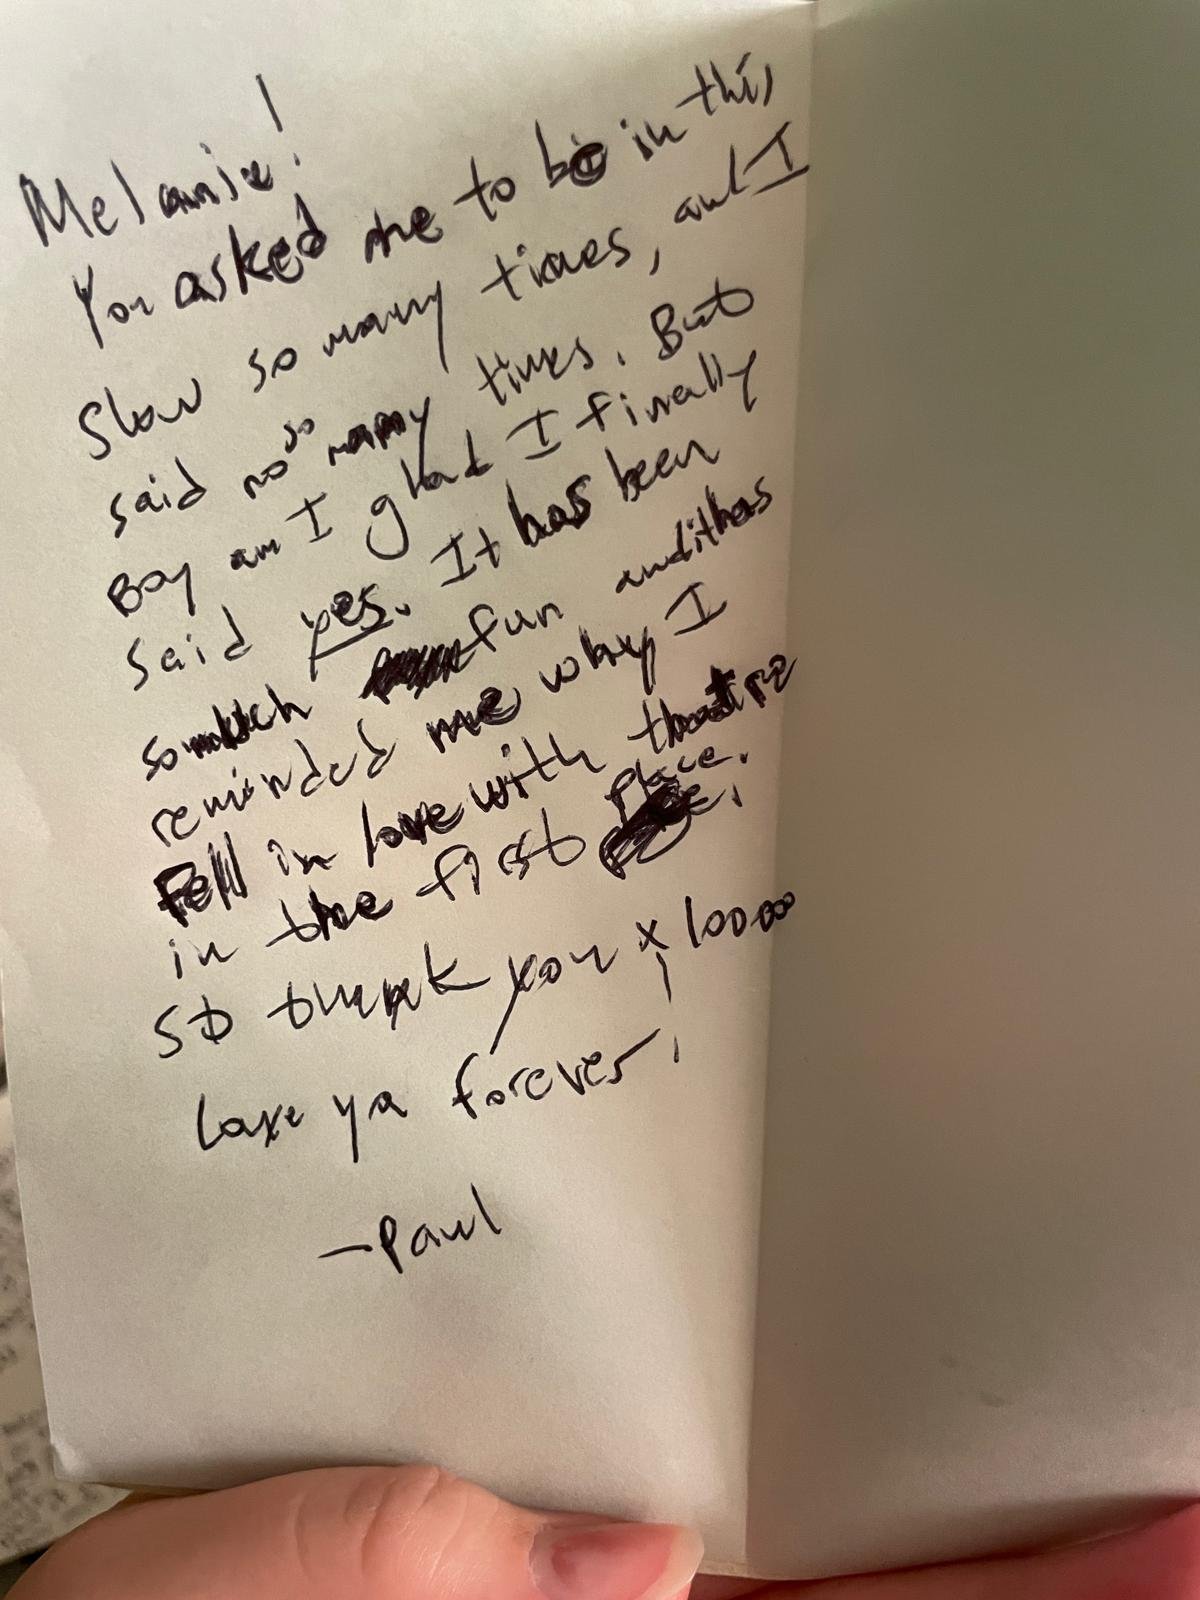 Melanie!
You asked me to be in this
Show so many times, and I
said no so many times. But
Boy am I glad I finally
said yes. It has been
so much fun and it has
reminded me why I
Fell in love with theatre
in the first place.
So thank you x 100000
Love ya forever!
-Paul